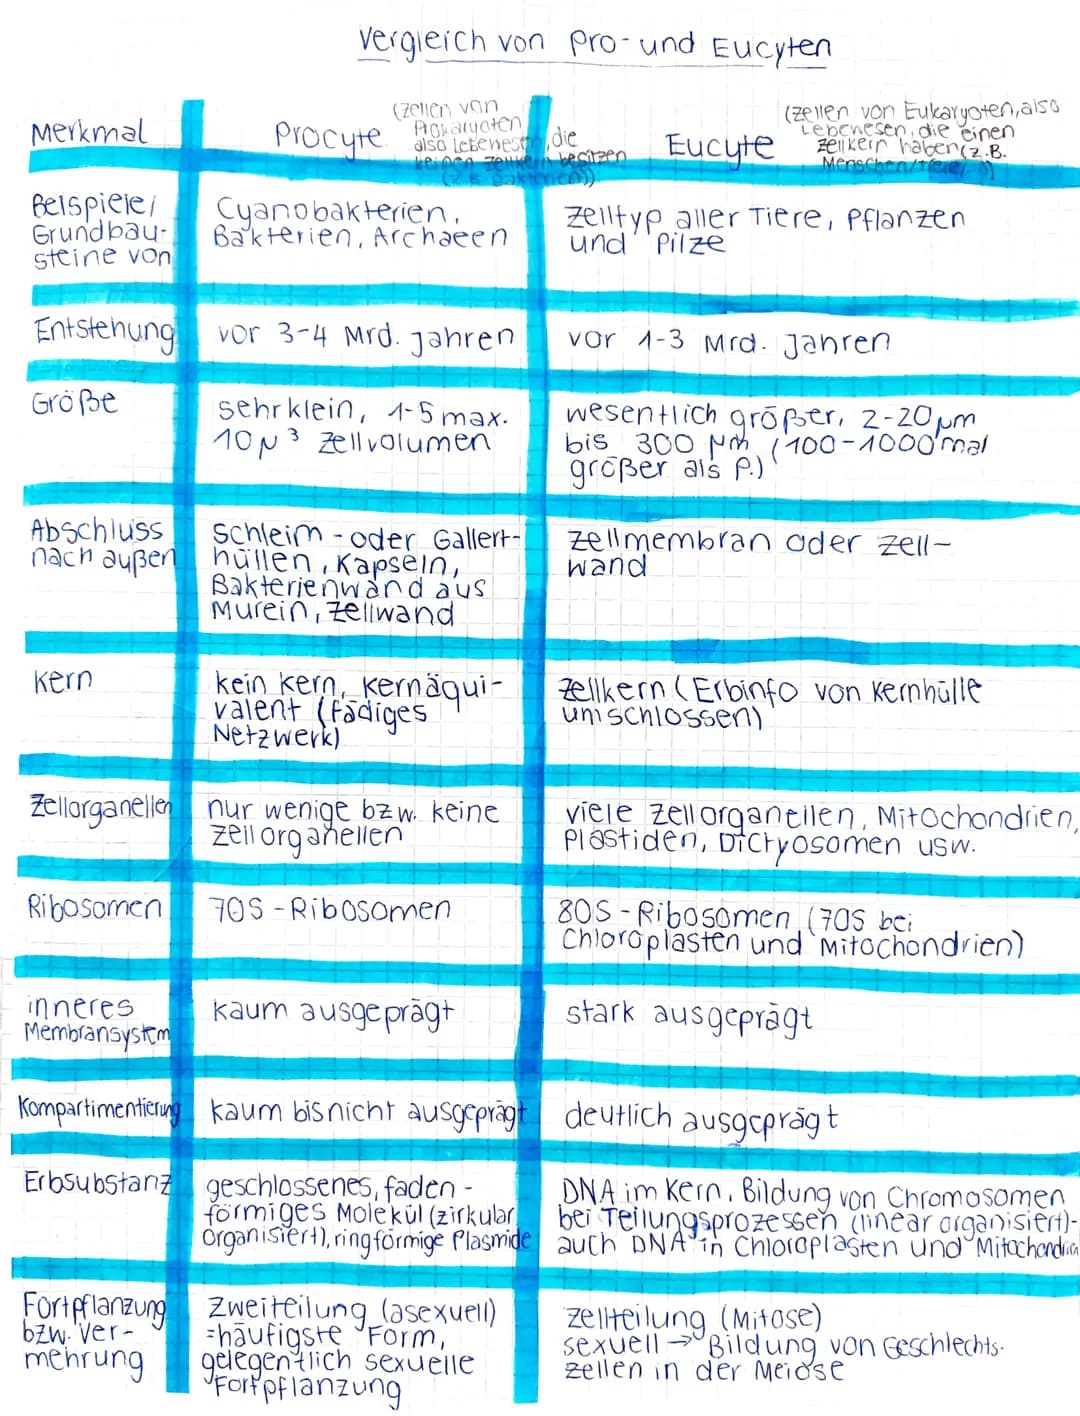 Vergleich von Pro- und Eucyten
Merkmal
Procyte
(Zellen von
Prokaryoten
also Lebewesen, die
keinen Zellkern besitzen
(z.B. Bakterien))
Eucyte
(Zellen von Eukaryoten, also
Lebewesen, die einen
Zellkern haben (z.B.
Menschen/Tiere/
Beispiele/
Grundbau-
steine von
Cyanobakterien,
Bakterien, Archaeen
Zelltyp aller Tiere, Pflanzen
und Pilze
Entstehung
vor 3-4 Mrd. Jahren
vor 1-3 Mrd. Jahren
Größe
sehr klein, 1-5 max.
10 µ³ Zellvolumen
wesentlich größer, 2-20 µm
bis 300 µm (100-1000 mal
größer als P.)
Abschluss
nach außen
Schleim- oder Gallert-
hüllen, Kapseln,
Bakterienwand aus
Murein, Zellwand
Zellmembran oder Zell-
wand
Kern
kein Kern, Kernäqui-
valent (fädiges
Netzwerk)
Zellkern (Erbinfo von Kernhülle
umschlossen)
Zellorganellen
nur wenige bzw. keine
Zellorganellen
viele Zellorganellen, Mitochondrien,
Plastiden, Dictyosomen usw.
Ribosomen
70S-Ribosomen
80S-Ribosomen (70S bei
Chloroplasten und Mitochondrien)
inneres
Membransystem
kaum ausgeprägt
stark ausgeprägt
Kompartimentierung
kaum bis nicht ausgeprägt
deutlich ausgeprägt
Erbsubstanz
geschlossenes, faden-
förmiges Molekül (zirkular
organisiert), ringförmige Plasmide
DNA im Kern, Bildung von Chromosomen
bei Teilungsprozessen (linear organisiert)-
auch DNA in Chloroplasten und Mitochondrien
Fortpflanzung
bzw. Ver-
mehrung
Zweiteilung (asexuell)
=häufigste Form,
gelegentlich sexuelle
Fortpflanzung
Zellteilung (Mitose)
sexuell → Bildung von Geschlechts-
zellen in der Meiose